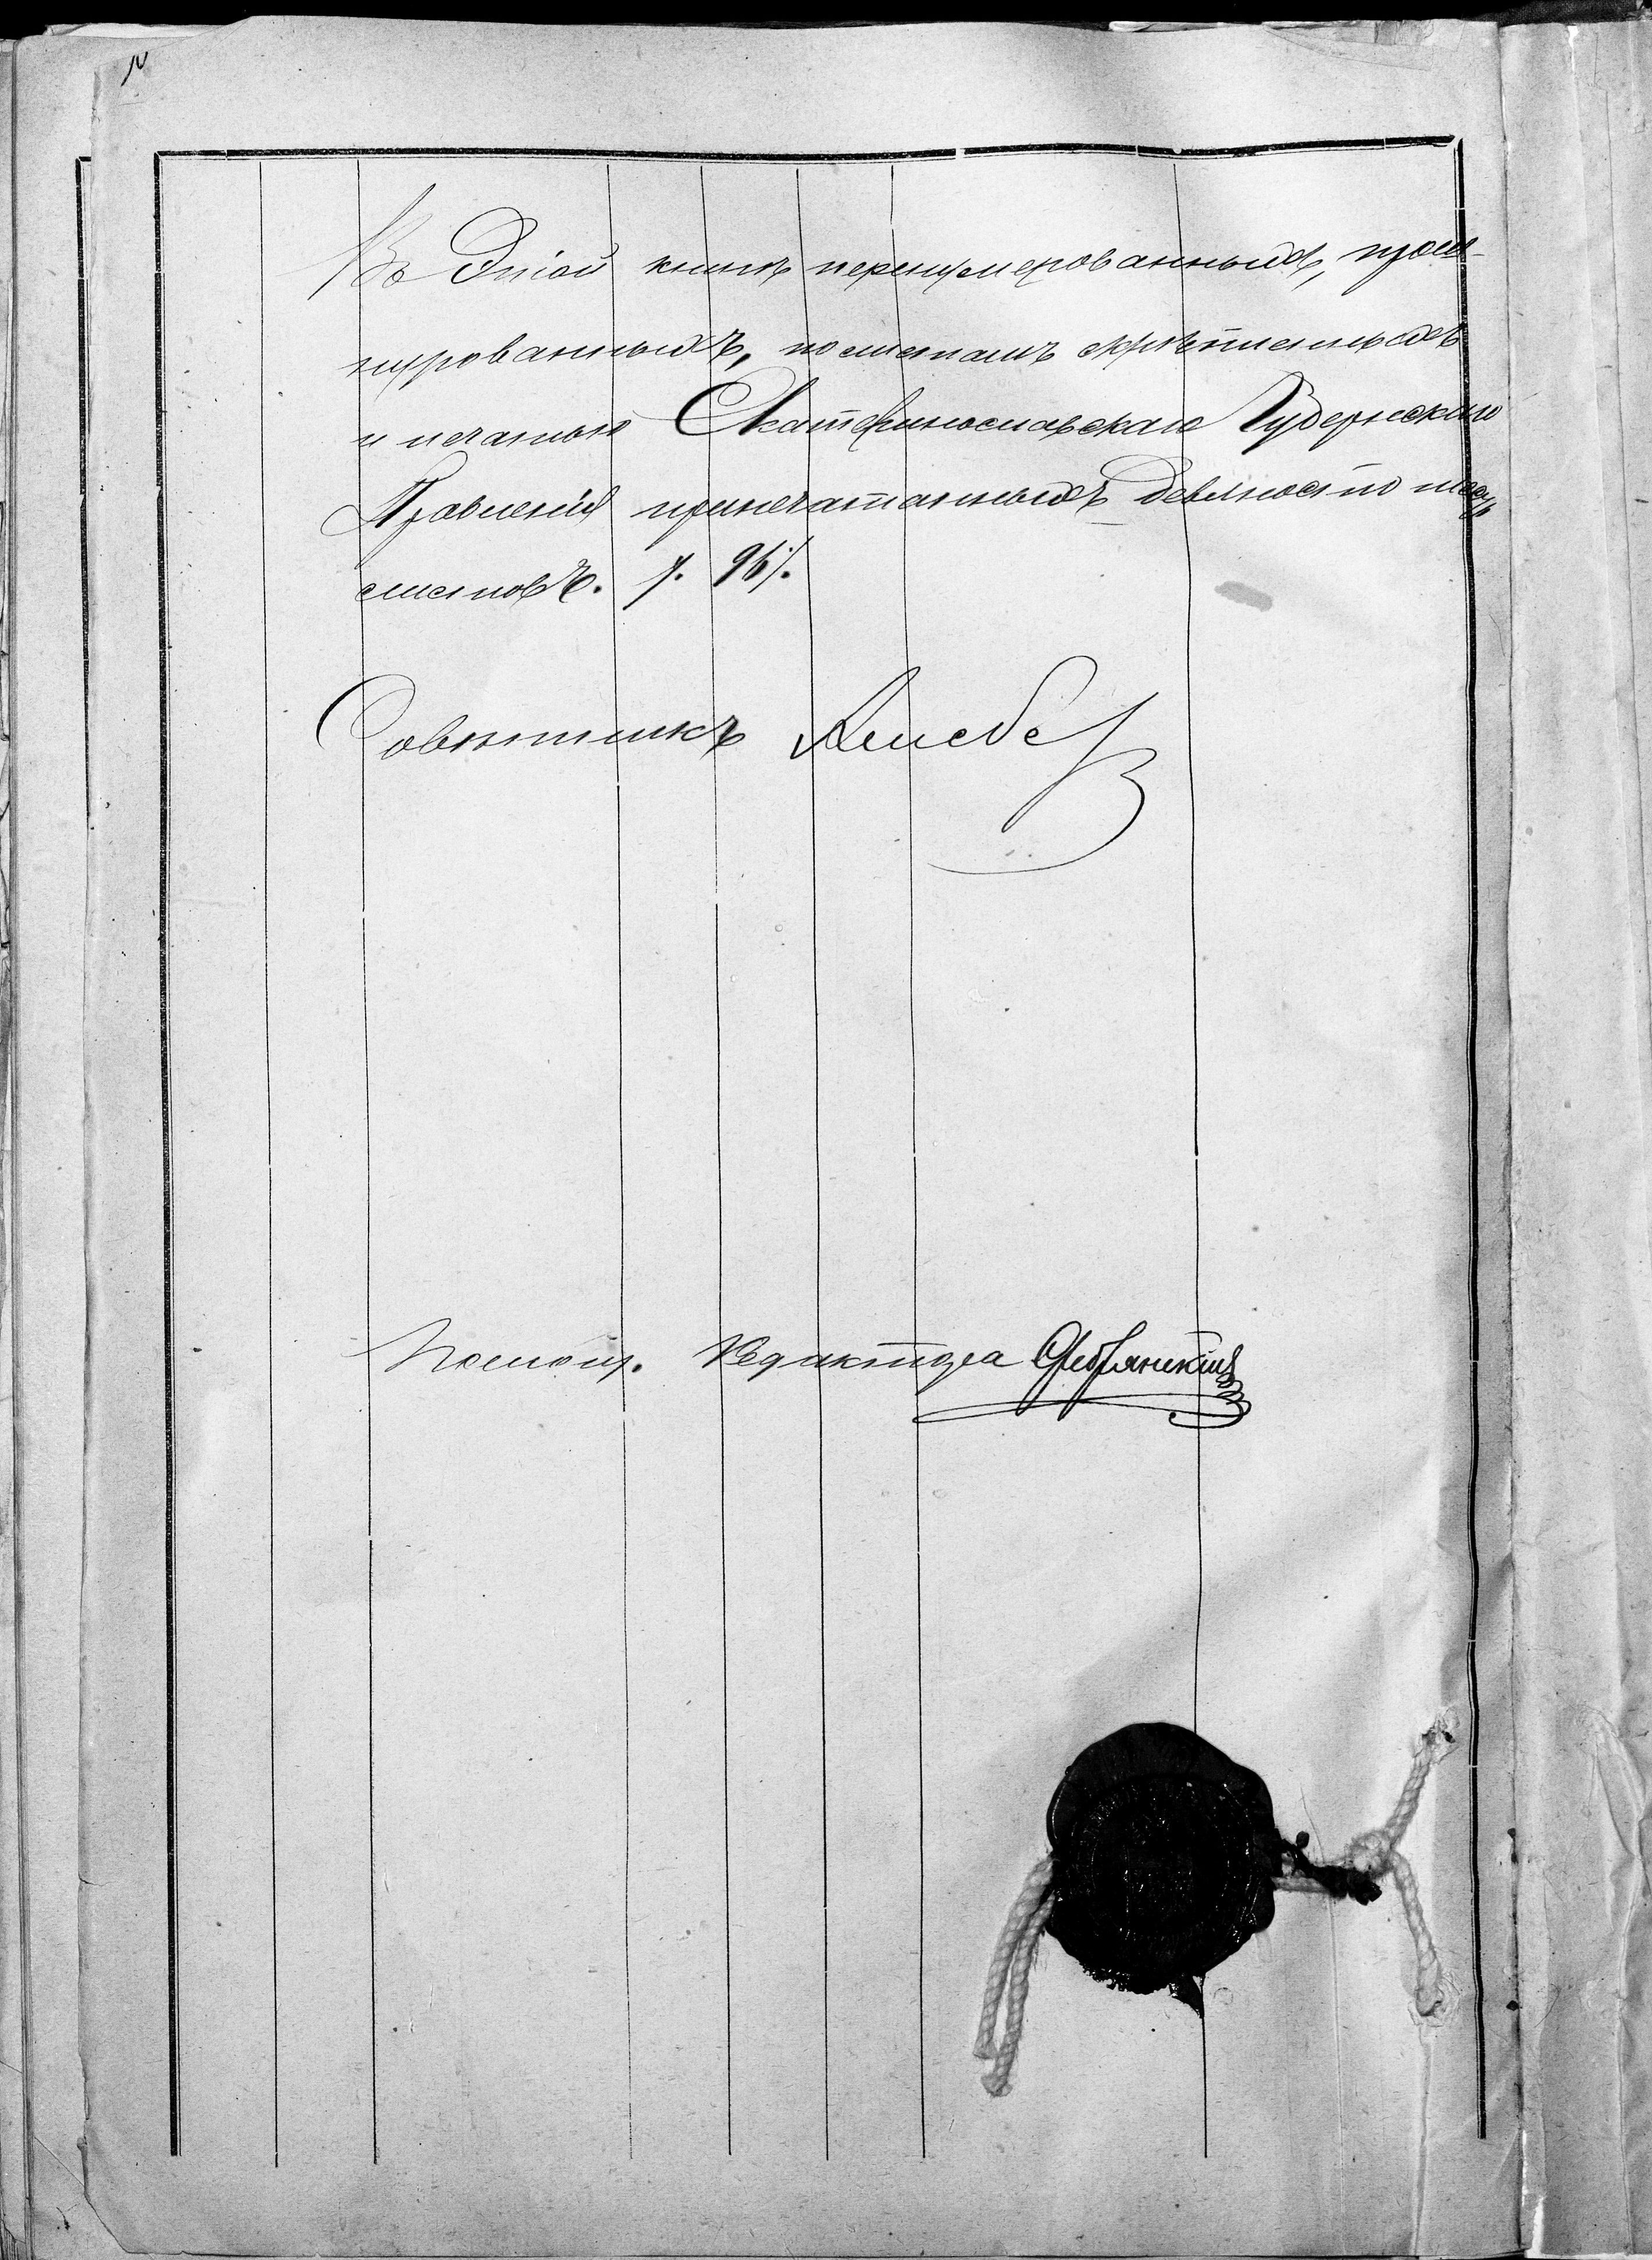 Въ этой книгѣ перенумерованныхъ, прош-
нурованныхъ, по листамъ скрѣпленныхъ
и печатью Екатеринославскаго Губернскаго
Правленія припечатанныхъ девяносто шесть
листовъ. /. 96 /.
Совѣтникъ
Помощ. Редактора Серебрянскій